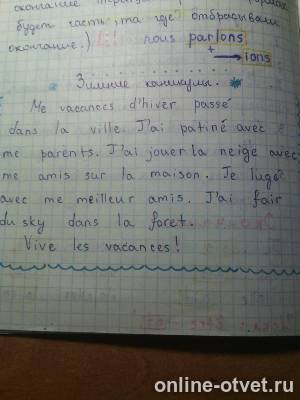 окончание
будет часть, та где отбрасывали
окончание.)
nous parlons
+
ions
Зимние каникулы.
Me vacances d'hiver passé
dans la ville. J'ai patiné avec
me parents. J'ai jouer la neige avec
me amis sur la maison. Je lugé
avec me meilleur amis. J'ai fair
du sky dans la foret.
Vive les vacances!
online-otvet.ru